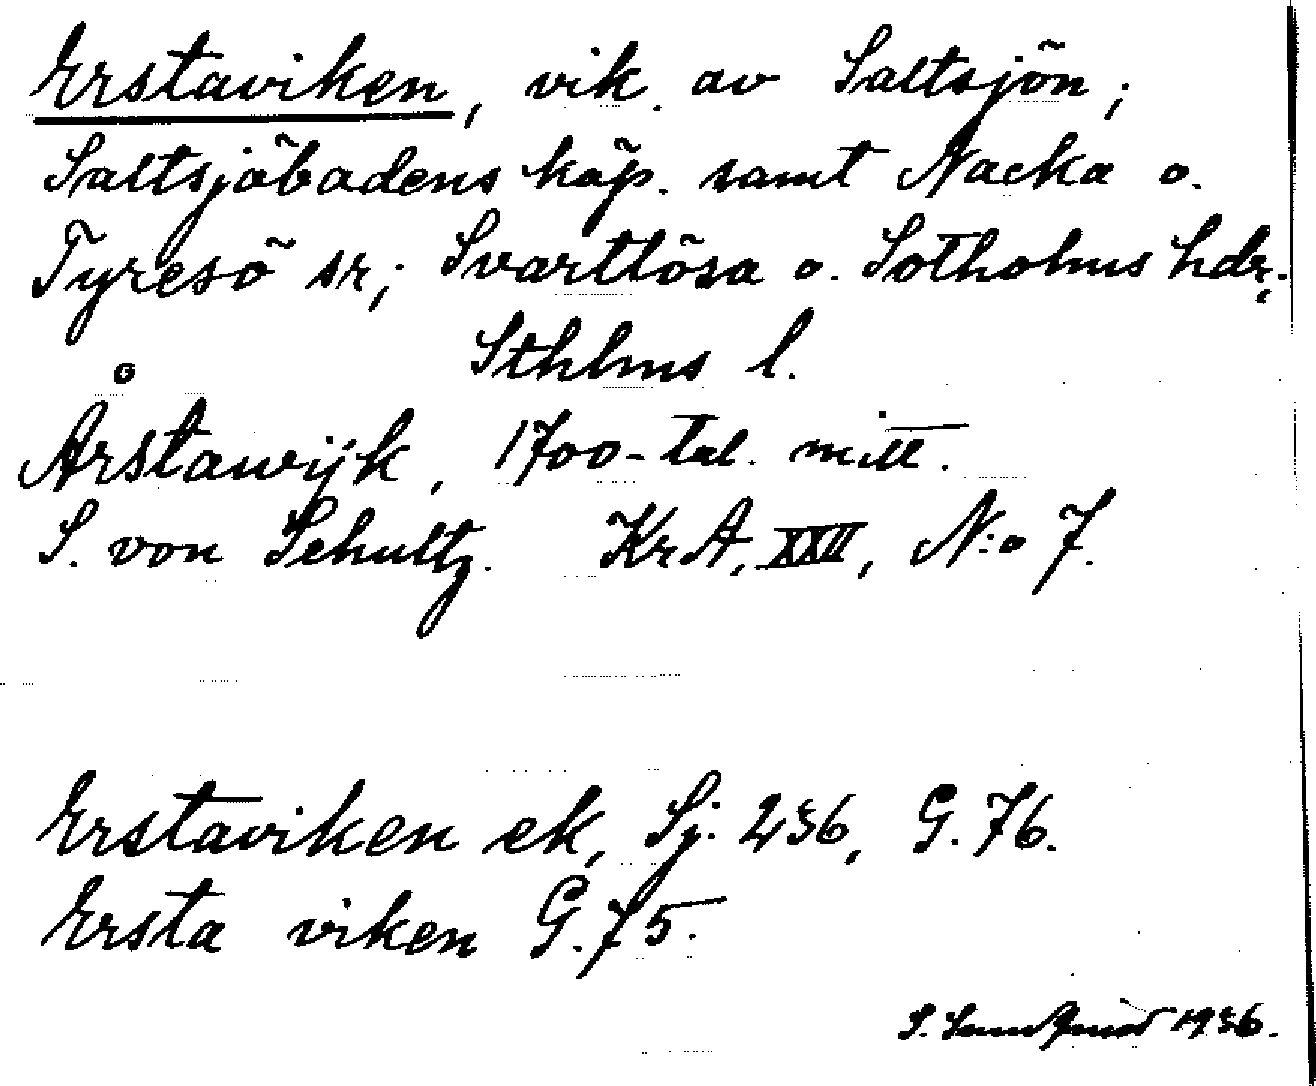 Erstaviken, vik av Saltsjön;
Saltsjöbadens köp. samt Nacka o.
Tyresö sr; Svartlösa o. Sotholms hdr.
Sthlms l.
Årstawijk, 1700-tal. mitt.
S. von Schultz. KrA, XXII, N:o 7.
Erstaviken ek, Sj. 236, G. 76.
Ersta viken G. 75.
S. 1936.